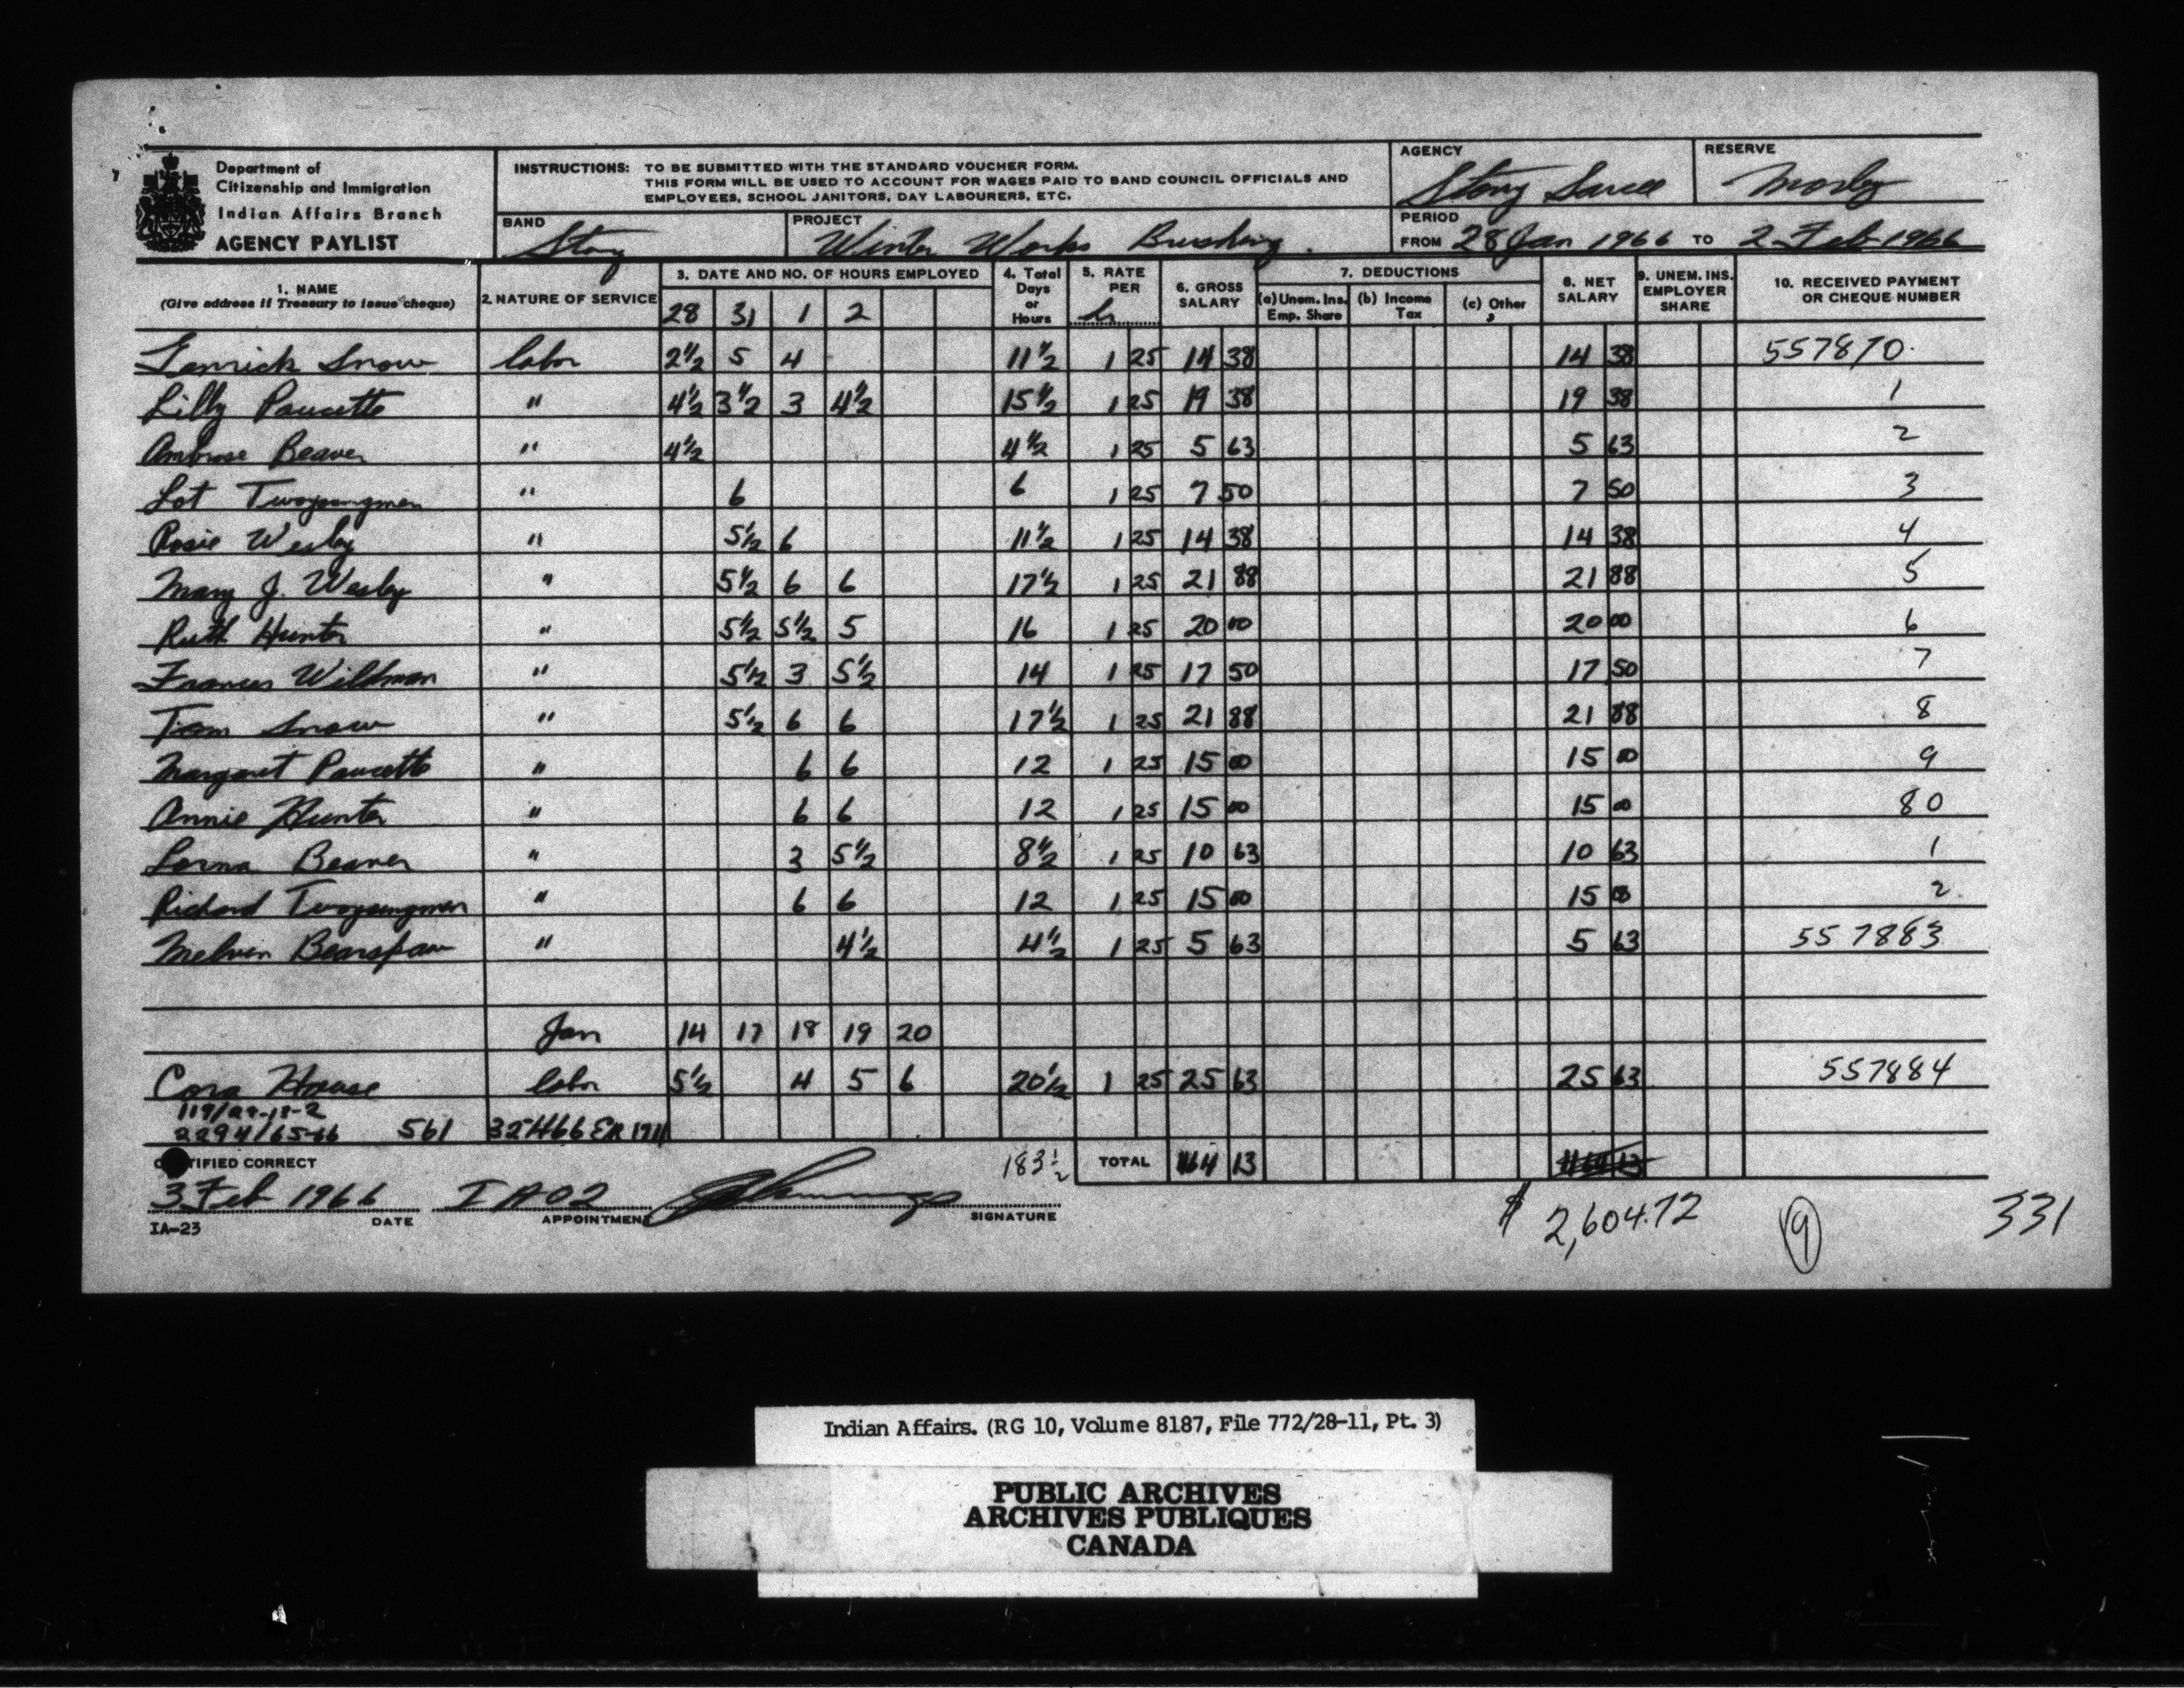 Department of
Citizenship and Immigration
Indian Affairs Branch
AGENCY PAYLIST
INSTRUCTIONS: TO BE SUBMITTED WITH THE STANDARD VOUCHER FORM.
THIS FORM WILL BE USED TO ACCOUNT FOR WAGES PAID TO BAND COUNCIL OFFICIALS AND
EMPLOYEES, SCHOOL JANITORS, DAY LABOURERS, ETC.
AGENCY Stony Sarcee
RESERVE Morley
BAND Stony
PROJECT Winter Works Brushing.
PERIOD
FROM 28 Jan 1966 TO 2 Feb 1966
1. NAME (Give address if Treasury to issue cheque) 2. NATURE OF SERVICE 3. DATE AND NO. OF HOURS EMPLOYED 4. Total Days or Hours 5. RATE PER hr 6. GROSS SALARY 7. DEDUCTIONS (a) Unem. Ins. Emp. Share (b) Income Tax (c) Other 8. NET SALARY 9. UNEM. INS. EMPLOYER SHARE 10. RECEIVED PAYMENT OR CHEQUE NUMBER
28 31 1 2
Snow labor 2½ 5 4 11½ 1 25 14 38 14 38 557870
Lilly Poucette " 4½ 3½ 3 4½ 15½ 1 25 19 38 19 38 1
Ambrose Beaver " 4½ 4½ 1 25 5 63 5 63 2
Lot Twoyoungmen " 6 6 1 25 7 50 7 50 3
Rosie Wesley " 5½ 6 11½ 1 25 14 38 14 38 4
Mary J. Wesley " 5½ 6 6 17½ 1 25 21 88 21 88 5
Ruth Hunter " 5½ 5½ 5 16 1 25 20 00 20 00 6
Frances Wildman " 5½ 3 5½ 14 1 25 17 50 17 50 7
Tom Snow " 5½ 6 6 17½ 1 25 21 88 21 88 8
Margaret Poucette " 6 6 12 1 25 15 00 15 00 9
Annie Hunter " 6 6 12 1 25 15 00 15 00 80
Lorna Beaver " 3 5½ 8½ 1 25 10 63 10 63 1
Richard Twoyoungmen " 6 6 12 1 25 15 00 15 00 2
Melvin Bearspaw " 4½ 4½ 1 25 5 63 5 63 557883
Jan 14 17 18 19 20
Cora House labor 5½ 4 5 6 20½ 1 25 25 63 25 63 557884
2294/65-66 561
CERTIFIED CORRECT 183½ TOTAL 13
3 Feb 1966 IA02
DATE APPOINTMENT SIGNATURE
IA-23
$ 2,604.72 9 331
Indian Affairs. (RG 10, Volume 8187, File 772/28-11, Pt. 3)
PUBLIC ARCHIVES
ARCHIVES PUBLIQUES
CANADA